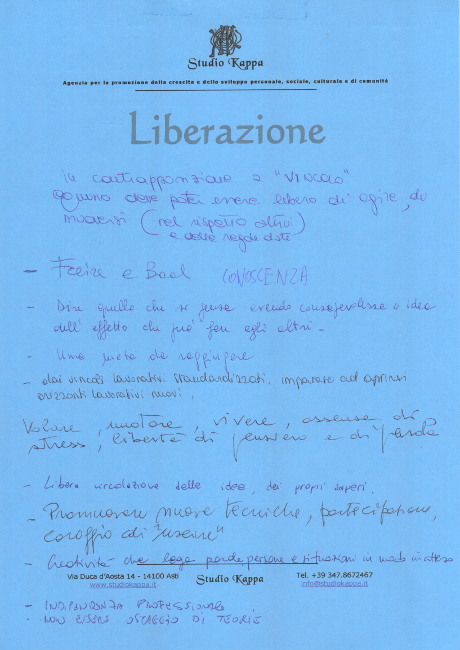 Studio Kappa
Agenzia per la promozione della crescita e dello sviluppo personale, sociale, culturale e di comunità
Liberazione
in contrapposizione a "VINCOLO"
ognuno deve poter essere libero di agire, di
muoversi (nel rispetto altrui)
e delle regole date
- Freire e Boal CONOSCENZA
- Dire quello che si pensa avendo consapevolezza o idea
dell'effetto che può fare agli altri -
- Una meta da raggiungere
- dai vincoli lavorativi standardizzati. imparare ad aprirsi
orizzonti lavorativi nuovi.
Volare, nuotare, vivere, assenza di
stress, libertà di pensiero e di parola
- Libera circolazione delle idee, dei propri saperi.
- Promuovere nuove tecniche, partecipazione,
coraggio di "uscire"
- Creatività che lega parole persone e situazioni in modo inatteso
Via Duca d'Aosta 14 - 14100 Asti
www.studiokappa.it
Studio Kappa
Tel. +39 347.8672467
info@studiokappa.it
- INDIPENDENZA PROFESSIONALE
- NON ESSERE OSTAGGIO DI TEORIE